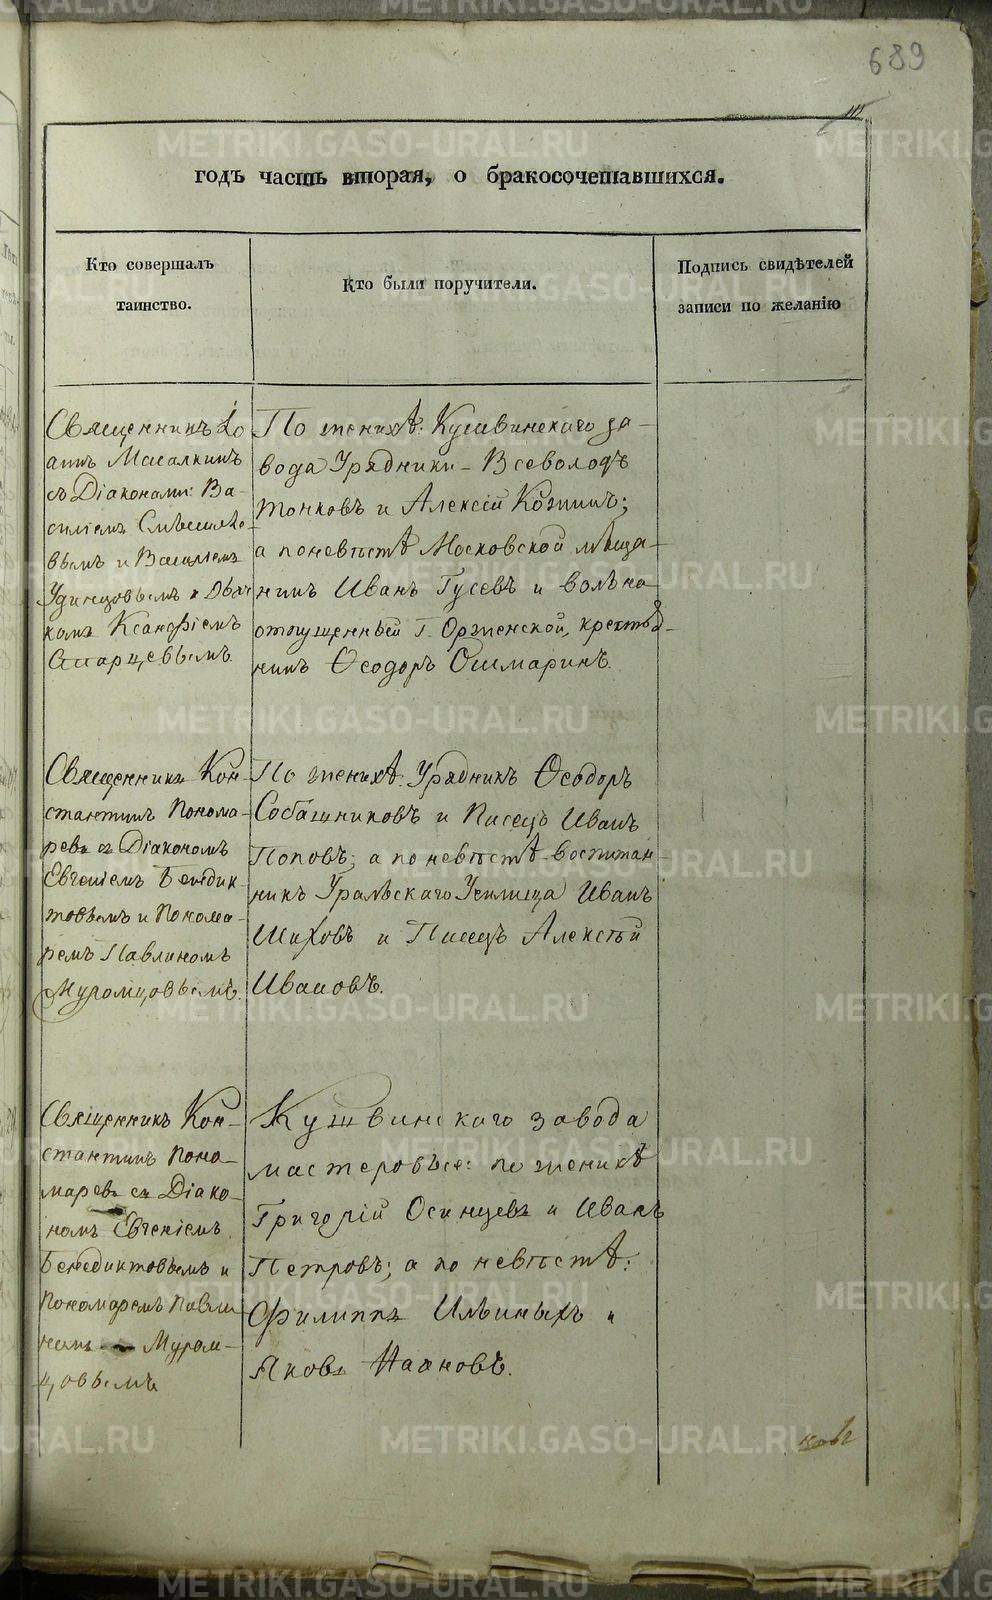 689
годъ часть вторая, о бракосочетавшихся.
Кто совершалъ
таинство.
Кто были поручители.
Подпись свидѣтелей
записи по желанію
Священникъ Іо
аннъ Масалкинъ
съ Діаконами: Ва-
силіемъ
вымъ и Василіемъ
Удинцовымъ и Дьяч
комъ Ксанфіемъ
Старцевымъ.
По женихѣ: Кушвинскаго за-
вода Урядники - Всеволодъ
Тонковъ и Алексій Козинъ;
а по невѣстѣ Московской мѣща-
нинъ Иванъ Гусевъ и вольно
отпущенный Г. крестья-
нинъ Ѳеодоръ Ошмаринъ.
Священникъ Кон-
стантинъ Понома-
ревъ съ Діакономъ
Евгеніемъ Бенедик-
товымъ и Понома-
ремъ Павлиномъ
Муромцовымъ.
По женихѣ: Урядникъ Ѳеодоръ
Собашниковъ и Писецъ Иванъ
Поповъ; а по невѣстѣ воспитан-
никъ Уральскаго Училища Иванъ
Шиховъ и Писецъ Алексѣй
Ивановъ.
Священникъ Кон-
стантинъ Поно-
маревъ съ Діако-
номъ Евгеніемъ
Бенедиктовымъ и
Пономаремъ Павли
номъ Муром-
цовымъ
Кушвинскаго завода
мастеровые: по женихѣ
Григорій Осинцевъ и Иванъ
Петровъ; а по невѣстѣ:
Филиппъ Ильиныхъ и
Яковъ Ивановъ.
METRIKI.GASO-URAL.RU